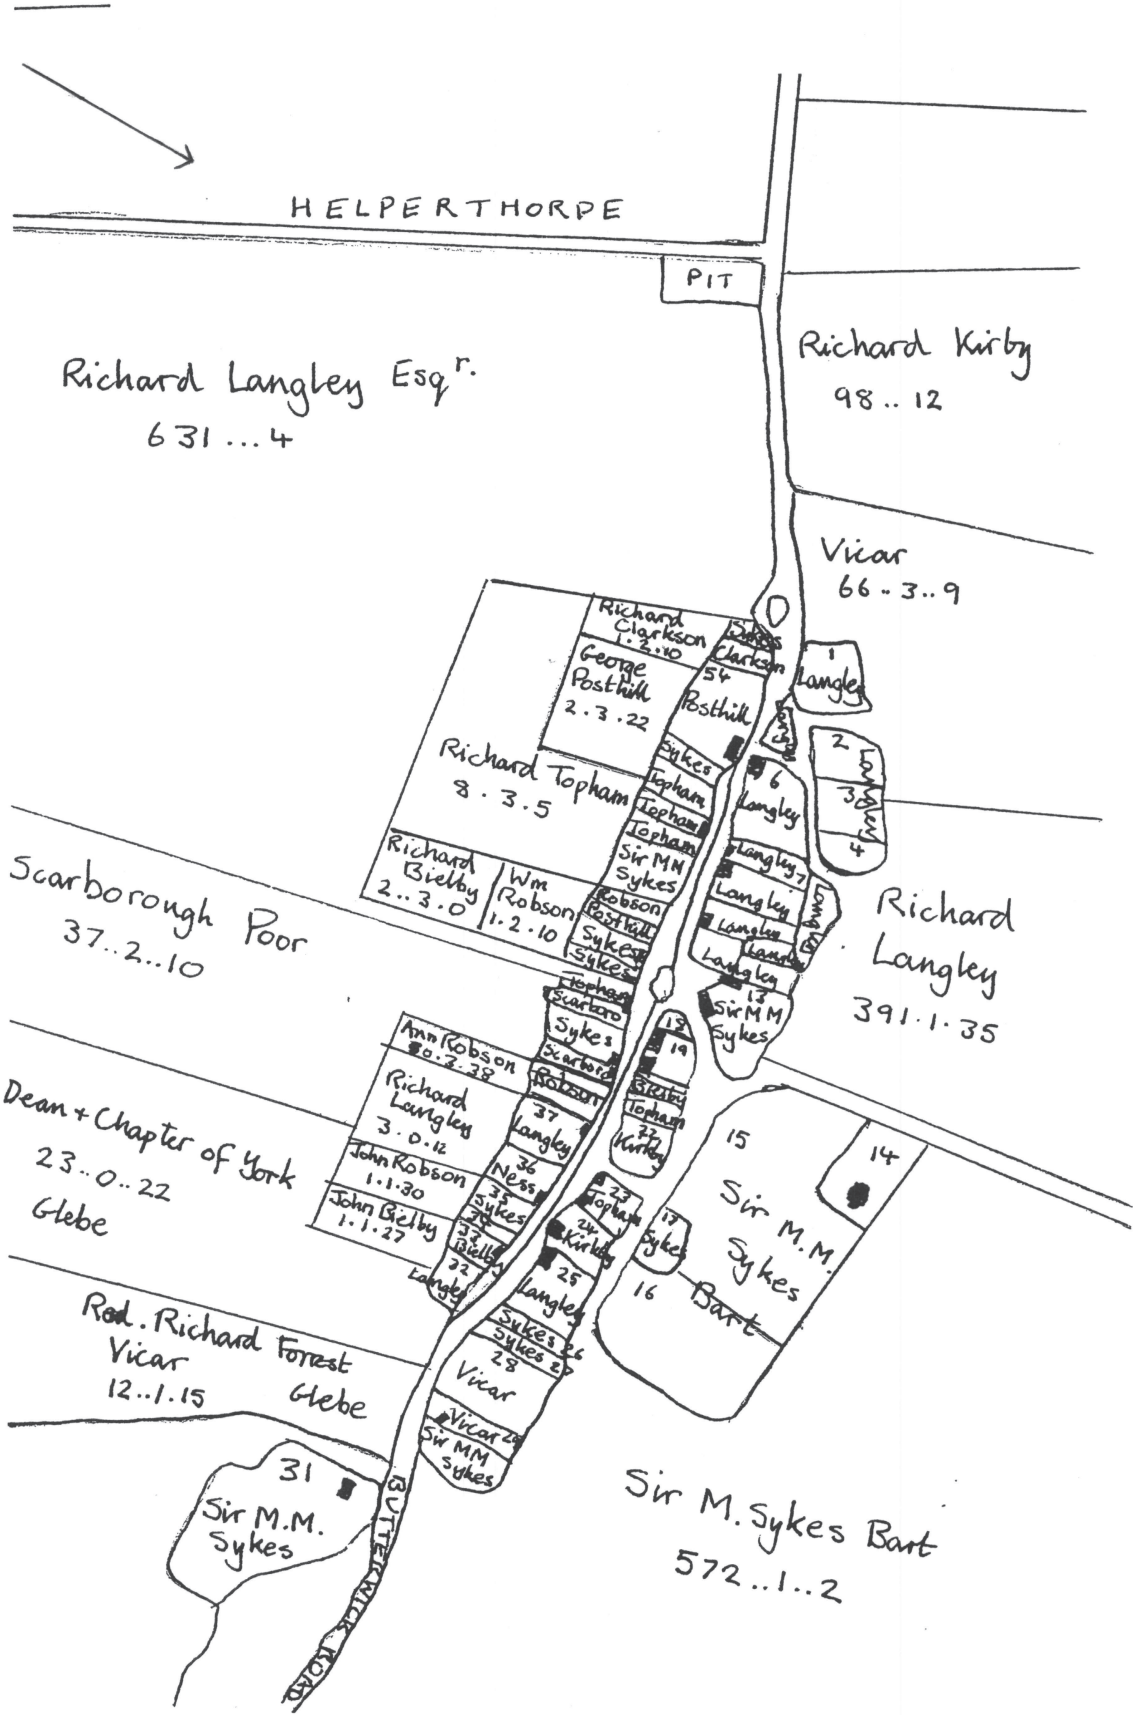 HELPERTHORPE
PIT
Richard Langley Esqr.
631...4
Richard Kirby
98..12
Vicar
66..3..9
Richard
Clarkson
1.2.10
George
Posthill
2.3.22
Richard Topham
8.3.5
Richard
Bielby
2..3.0
Wm
Robson
1.2.10
Sykes
Clarkson
54
Posthill
Sykes
Topham
Topham
Topham
Sir MM
Sykes
Robson
Posthill
Sykes
Sykes
Topham
Scarboro
Sykes
Scarboro
Robson
37
Langley
36
Ness
35
Sykes
34
33
Bielby
32
Langley
1
Langley
2
3
4
Langley
6
Langley
Langley 7
Langley
Langley
Langley
Langley
Langley
13
Sir MM
Sykes
Richard
Langley
391.1.35
Scarborough Poor
37..2..10
Ann Robson
0.3.38
Richard
Langley
3.0.12
John Robson
1.1.30
John Bielby
1.1.27
Dean + Chapter of York
23..0..22
Glebe
18
19
Topham
22
Kirkby
23
Topham
24
Kirkby
25
Langley
Sykes 26
Sykes 27
28
Vicar
Vicar 29
Sir MM
Sykes
14
15
Sir M.M.
Sykes
Bart
16
17
Sykes
Rod. Richard Forrest
Vicar
12..1.15
Glebe
31
Sir M.M.
Sykes
BUTTERWICK ROAD
Sir M. Sykes Bart
572..1..2